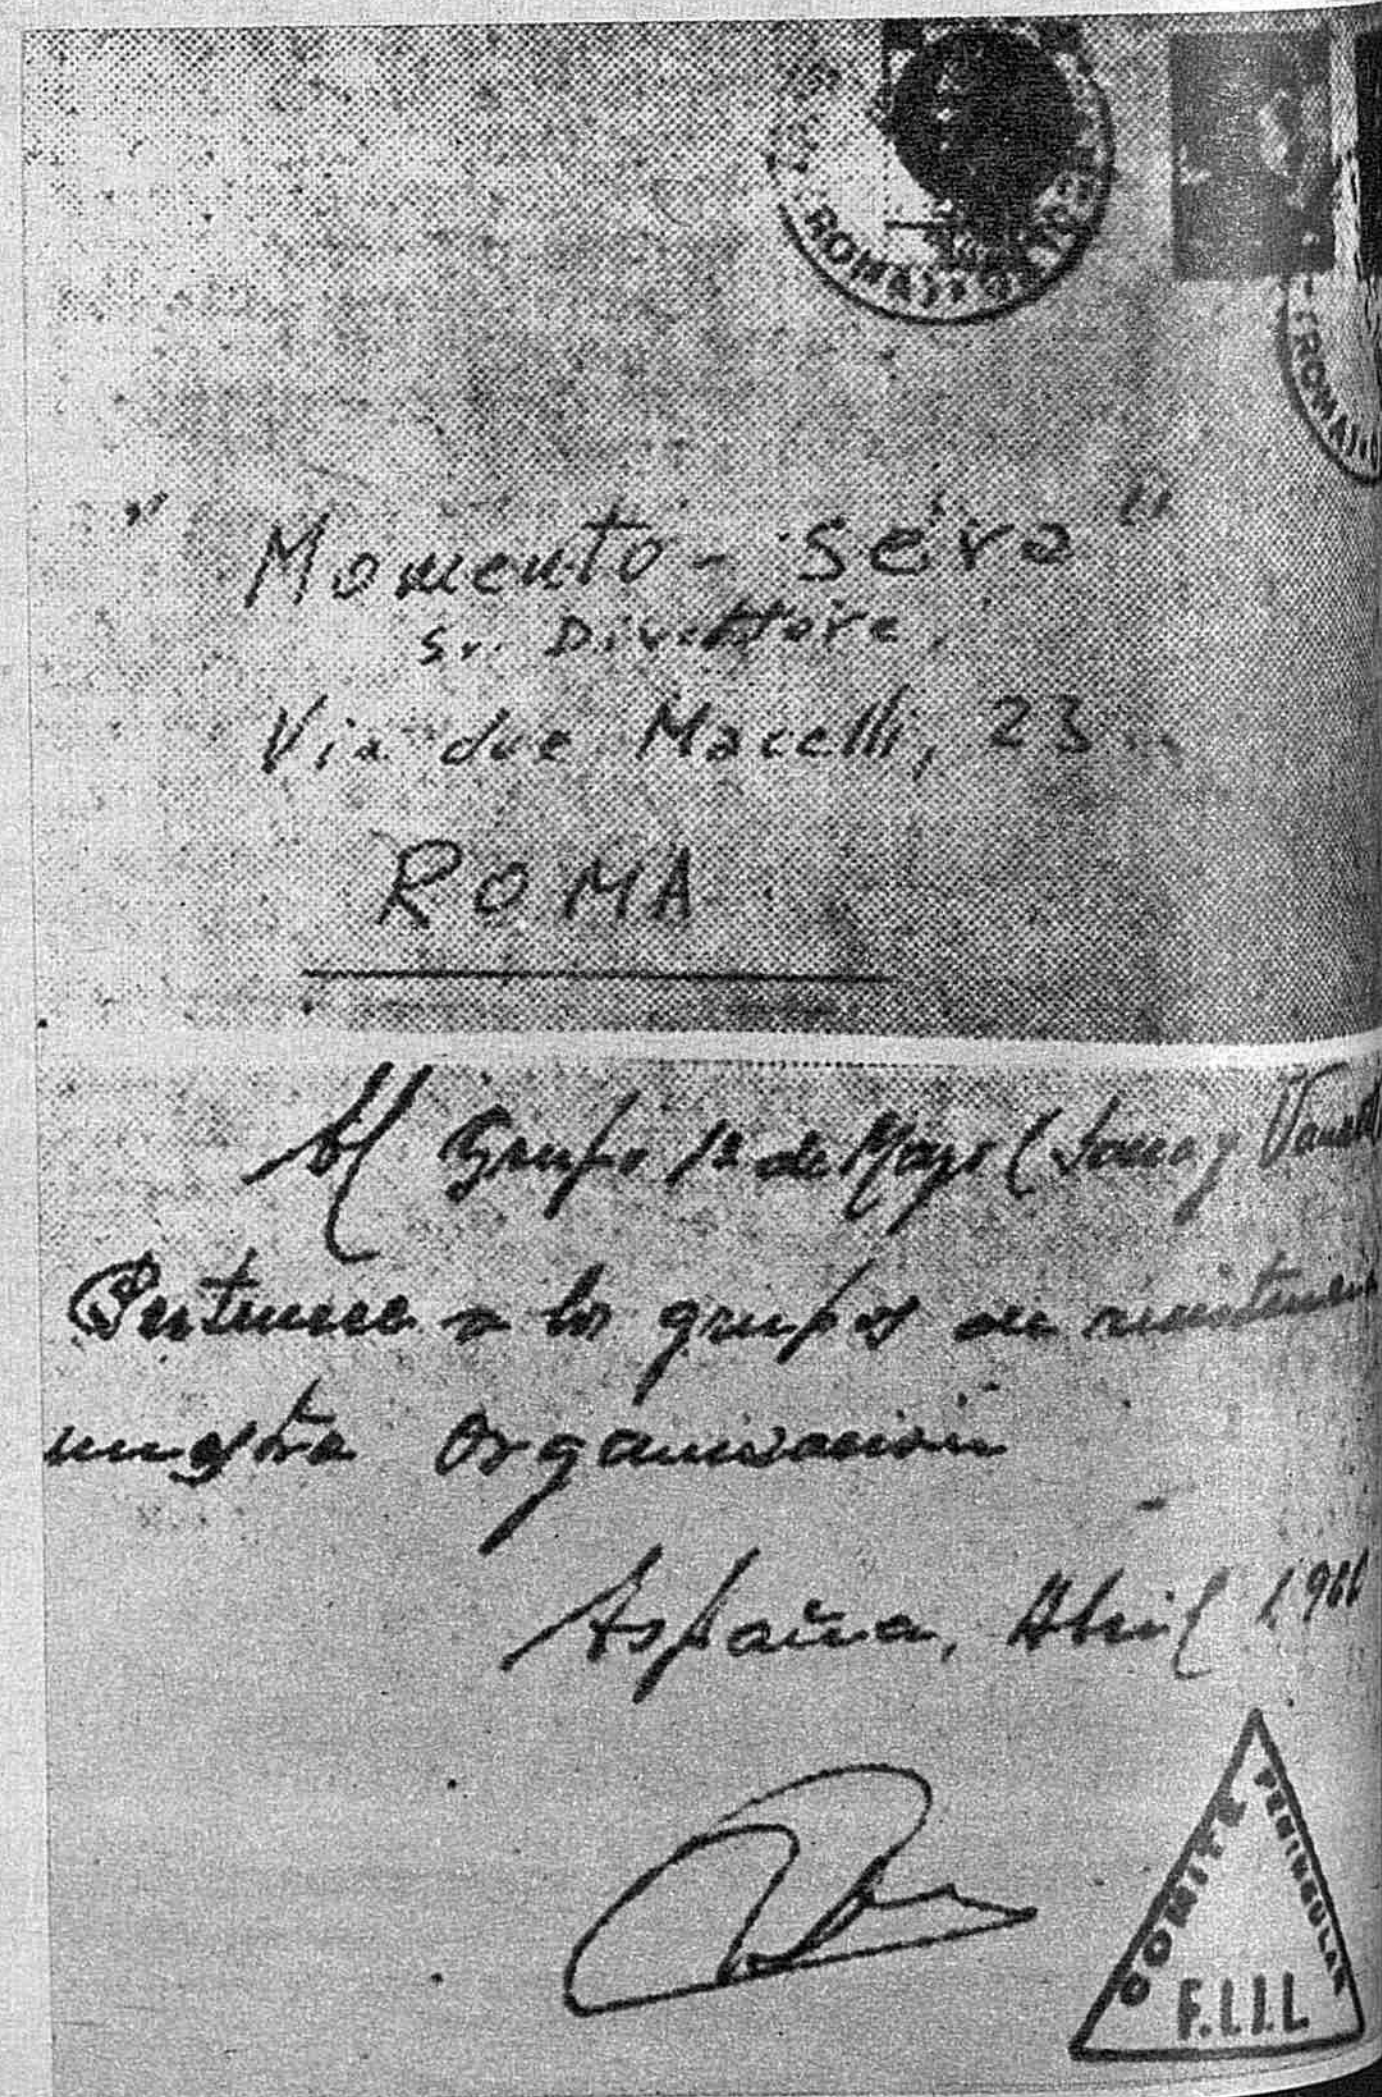 ROMA
(ROMA)
" Momento - séra "
Sr. Direttore,
Via due Macelli, 23
ROMA
El Grupo 1º de Mayo (
Pertenece a los grupos de
nuestra Organización
España, Abril 1966
COMITE PENINSULAR
F.I.J.L